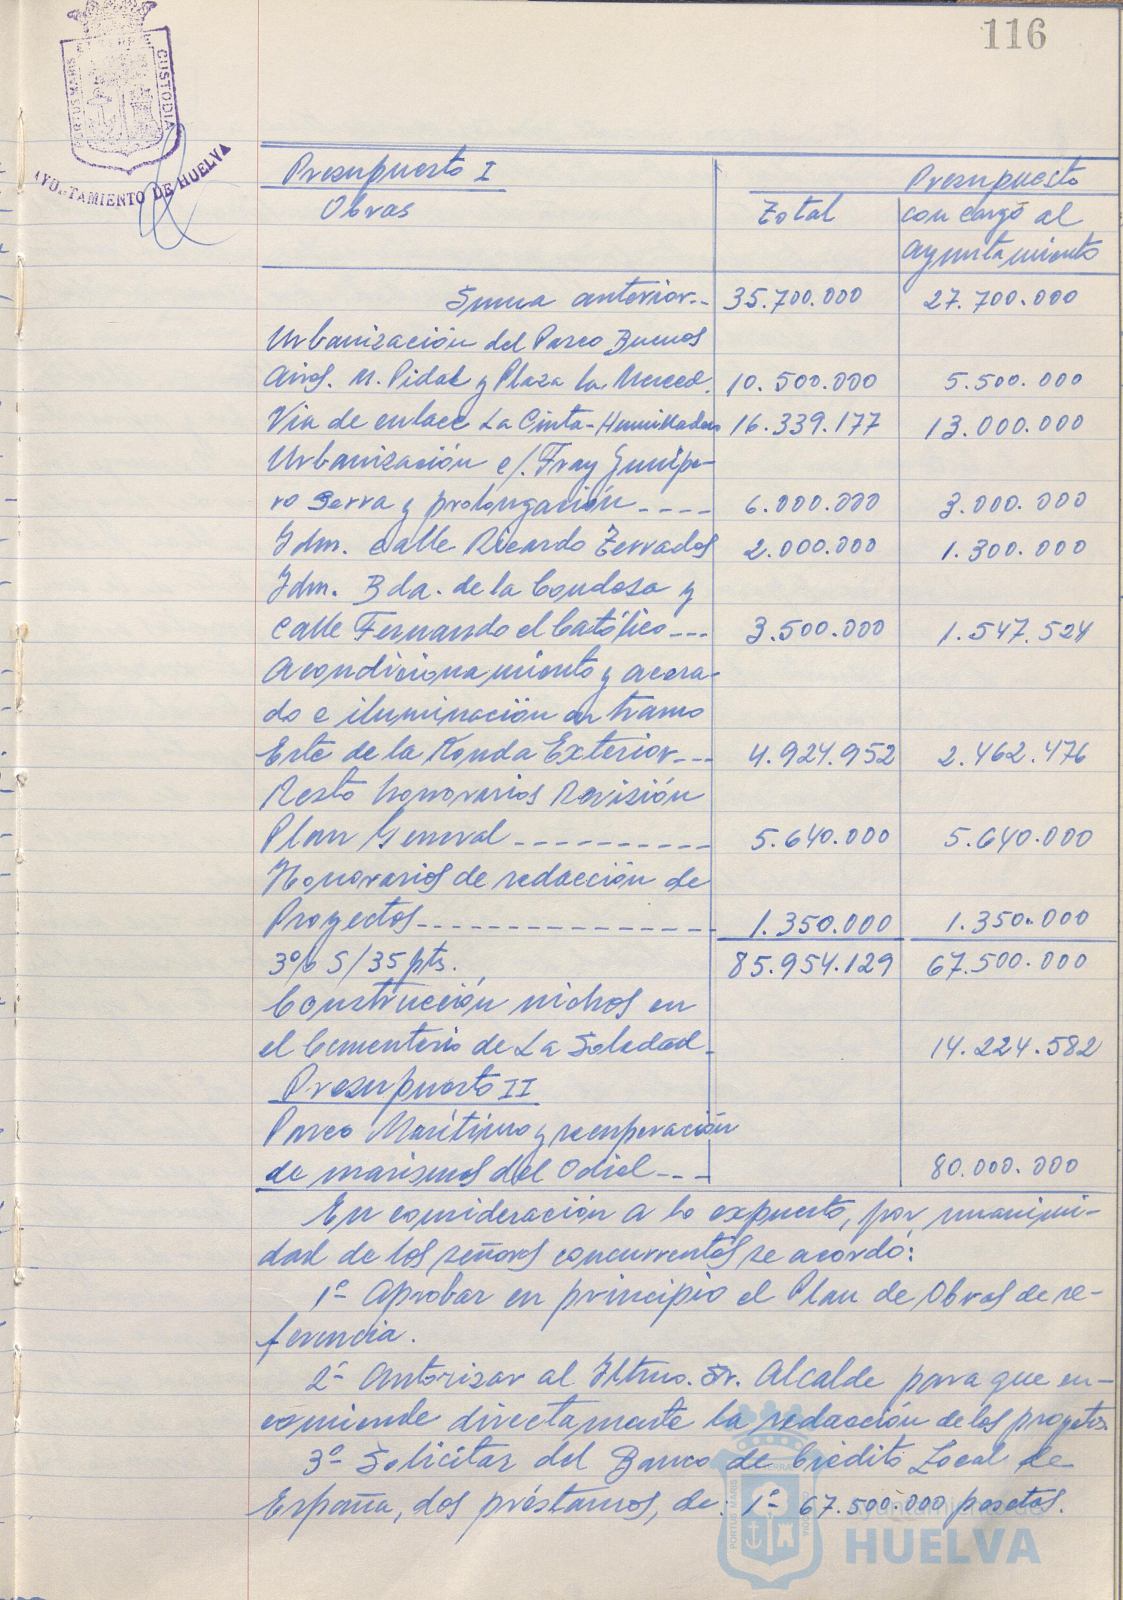 116
PORTUS MARIS
CUSTODIA
AYUNTAMIENTO DE HUELVA
Presupuesto I
Presupuesto
Obras
Total
con cargo al
ayuntamiento
Suma anterior.. 35.700.000 27.700.000
Urbanización del Paseo Buenos
Aires. M. Pidal y Plaza la Merced. 10.500.000 5.500.000
Via de enlace La Cinta-Humilladero 16.339.177 13.000.000
Urbanización c/. Fray Junípe-
ro Serra y prolongación ---- 6.000.000 3.000.000
Idm. calle Ricardo Terrados 2.000.000 1.300.000
Idm. Bda. de la
calle Fernando el Católico --- 3.500.000 1.547.524
Acondicionamiento y acera-
do e iluminación en tramo
Este de la Ronda Exterior --- 4.924.952 2.462.476
Resto honorarios Revisión
Plan General ---------- 5.640.000 5.640.000
Honorarios de redacción de
Proyectos --------------- 1.350.000 1.350.000
3% S/35 pts. 85.954.129 67.500.000
Construcción nichos en
el Cementerio de La Soledad- 14.224.582
Presupuesto II
Paseo Marítimo y recuperación
de marismas del Odiel --- 80.000.000
En consideración a lo expuesto, por unanimi-
dad de los señores concurrentes se acordó:
1º- Aprobar en principio el Plan de Obras de re-
ferencia.
2º- Autorizar al Iltmo. Sr. Alcalde para que en-
comiende directamente la redacción de los proyectos.
3º- Solicitar del Banco de Crédito Local de
España, dos préstamos, de: 1º- 67.500.000 pesetas.
PORTUS MARIS
Ayuntamiento de
HUELVA